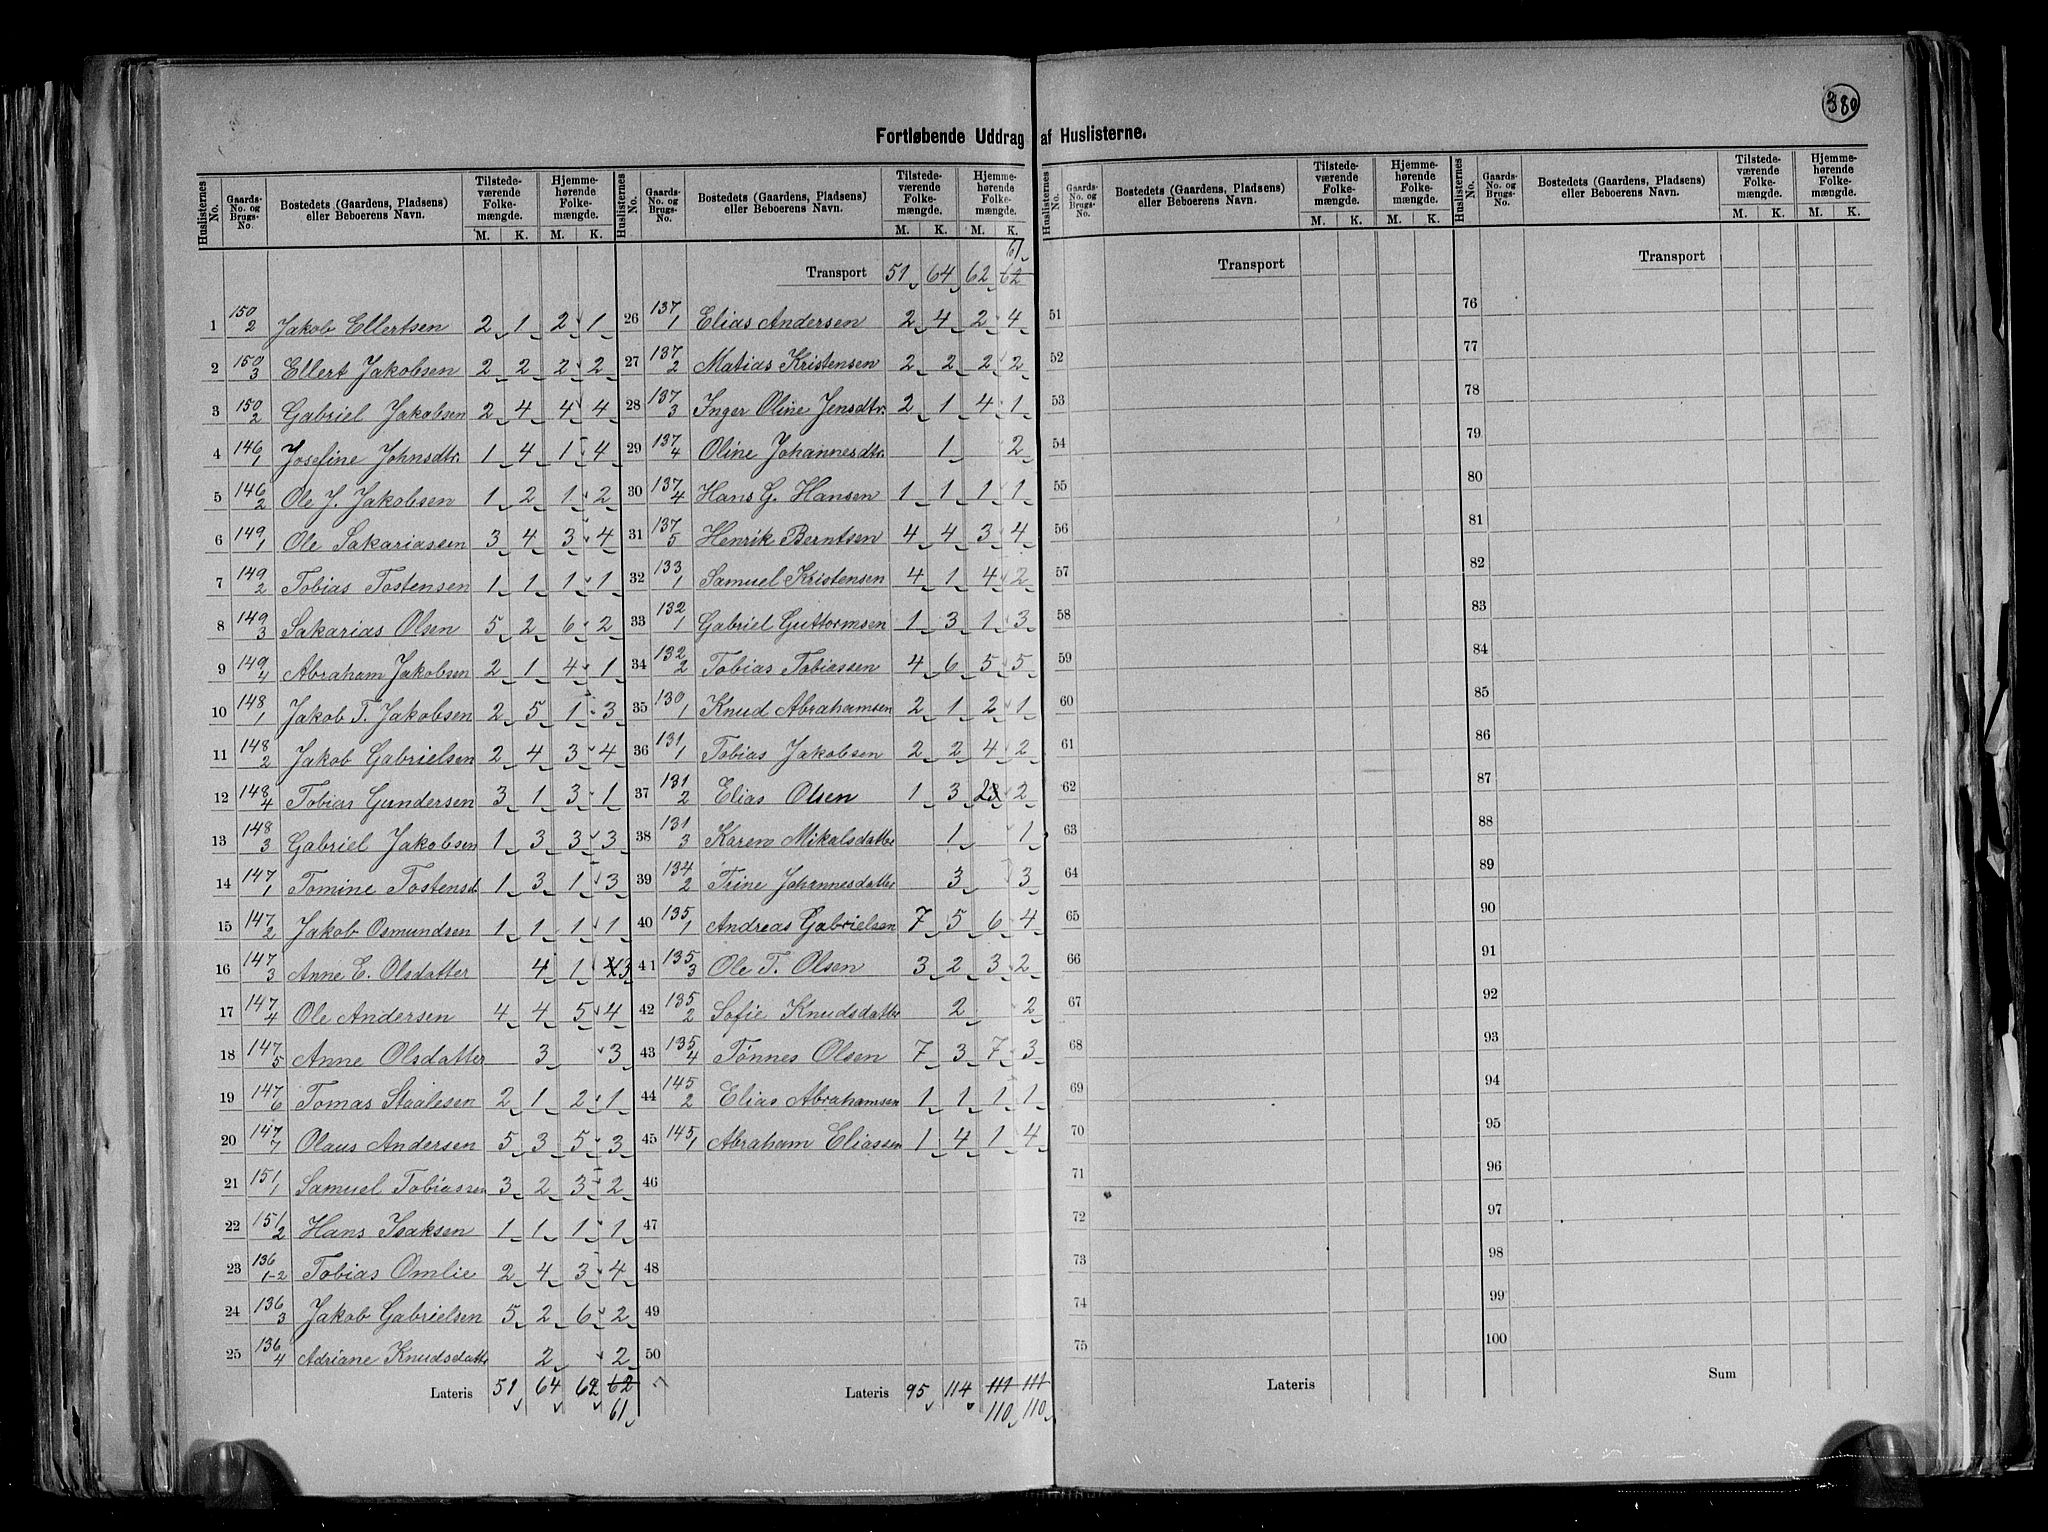 380
Fortløbende Uddrag af Huslisterne.
Huslisternes No. | Gaards-No. og Brugs-No. | Bostedets (Gaardens, Pladsens) eller Beboerens Navn. | Tilstedeværende Folkemængde. M. K. | Hjemmehørende Folkemængde. M. K.
1 150/2 Jakob Ellertsen 2 1 2 1
2 150/3 Ellert Jakobsen 2 2 2 2
3 150/2 Gabriel Jakobsen 2 4 4 4
4 146/1 Josefine Johnsdtr. 1 4 1 4
5 146/2 Ole J. Jakobsen 1 2 1 2
6 149/1 Ole Sakariassen 3 4 3 4
7 149/2 Tobias Tostensen 1 1 1 1
8 149/3 Sakarias Olsen 5 2 6 2
9 149/4 Abraham Jakobsen 2 1 4 1
10 148/1 Jakob T. Jakobsen 2 5 1 3
11 148/2 Jakob Gabrielsen 2 4 3 4
12 148/4 Tobias Gundersen 3 1 3 1
13 148/3 Gabriel Jakobsen 1 3 3 3
14 147/1 Tomine Tostensd 1 3 1 3
15 147/2 Jakob Osmundsen 1 1 1 1
16 147/3 Anne E. Olsdatter 4 1 4 3
17 147/4 Ole Andersen 4 4 5 4
18 147/5 Anne Olsdatter 3 3
19 147/6 Tomas Staalesen 2 1 2 1
20 147/7 Olaus Andersen 5 3 5 3
21 151/1 Samuel Tobiassen 3 2 3 2
22 151/2 Hans Isaksen 1 1 1 1
23 136/1-2 Tobias Omlie 2 4 3 4
24 136/3 Jakob Gabrielsen 5 2 6 2
25 136/4 Adriane Knudsdatte 2 2
Lateris 51 64 62 62
61
Huslisternes No. | Gaards-No. og Brugs-No. | Bostedets (Gaardens, Pladsens) eller Beboerens Navn. | Tilstedeværende Folkemængde. M. K. | Hjemmehørende Folkemængde. M. K.
61
Transport 51 64 62 62
26 137/1 Elias Andersen 2 4 2 4
27 137/2 Matias Kristensen 2 2 2 2
28 137/3 Inger Oline Jensdtr. 2 1 4 1
29 137/4 Oline Johannesdtr. 1 2
30 137/4 Hans G. Hansen 1 1 1 1
31 137/5 Henrik Berntsen 4 4 3 4
32 133/1 Samuel Kristensen 4 1 4 2
33 132/1 Gabriel Guttormsen 1 3 1 3
34 132/2 Tobias Tobiassen 4 6 5 5
35 130/1 Knud Abrahamsen 2 1 2 1
36 131/1 Tobias Jakobsen 2 2 4 2
37 131/2 Elias Olsen 1 3 2 3 2
38 131/3 Karen Mikalsdatte 1 1
39 134/2 Trine Johannesdatte 3 3
40 135/1 Andreas Gabrielsen 7 5 6 4
41 135/3 Ole T. Olsen 3 2 3 2
42 135/2 Sofie Knudsdatte 2 2
43 135/4 Tønnes Olsen 7 3 7 3
44 145/2 Elias Abrahamsen 1 1 1 1
45 145/1 Abraham Eliassen 1 4 1 4
46
47
48
49
50
Lateris 95 114 111 111
110 110
Huslisternes No. | Gaards-No. og Brugs-No. | Bostedets (Gaardens, Pladsens) eller Beboerens Navn. | Tilstedeværende Folkemængde. M. K. | Hjemmehørende Folkemængde. M. K.
Transport
51
52
53
54
55
56
57
58
59
60
61
62
63
64
65
66
67
68
69
70
71
72
73
74
75
Lateris
Huslisternes No. | Gaards-No. og Brugs-No. | Bostedets (Gaardens, Pladsens) eller Beboerens Navn. | Tilstedeværende Folkemængde. M. K. | Hjemmehørende Folkemængde. M. K.
Transport
76
77
78
79
80
81
82
83
84
85
86
87
88
89
90
91
92
93
94
95
96
97
98
99
100
Sum